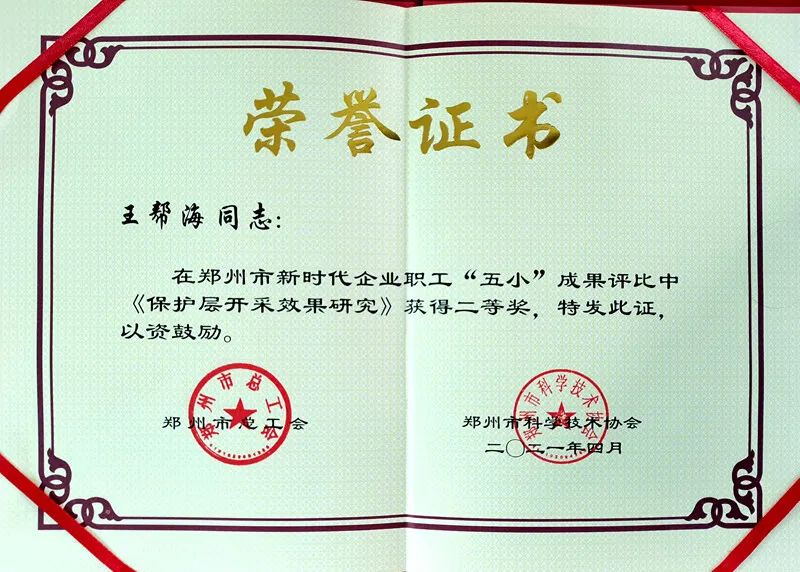 荣誉证书
王帮海同志：
在郑州市新时代企业职工“五小”成果评比中
《保护层开采效果研究》获得二等奖，特发此证，
以资鼓励。
郑州市总工会
郑州市总工会
郑州市科学技术协会
郑州市科学技术协会
二〇二一年四月